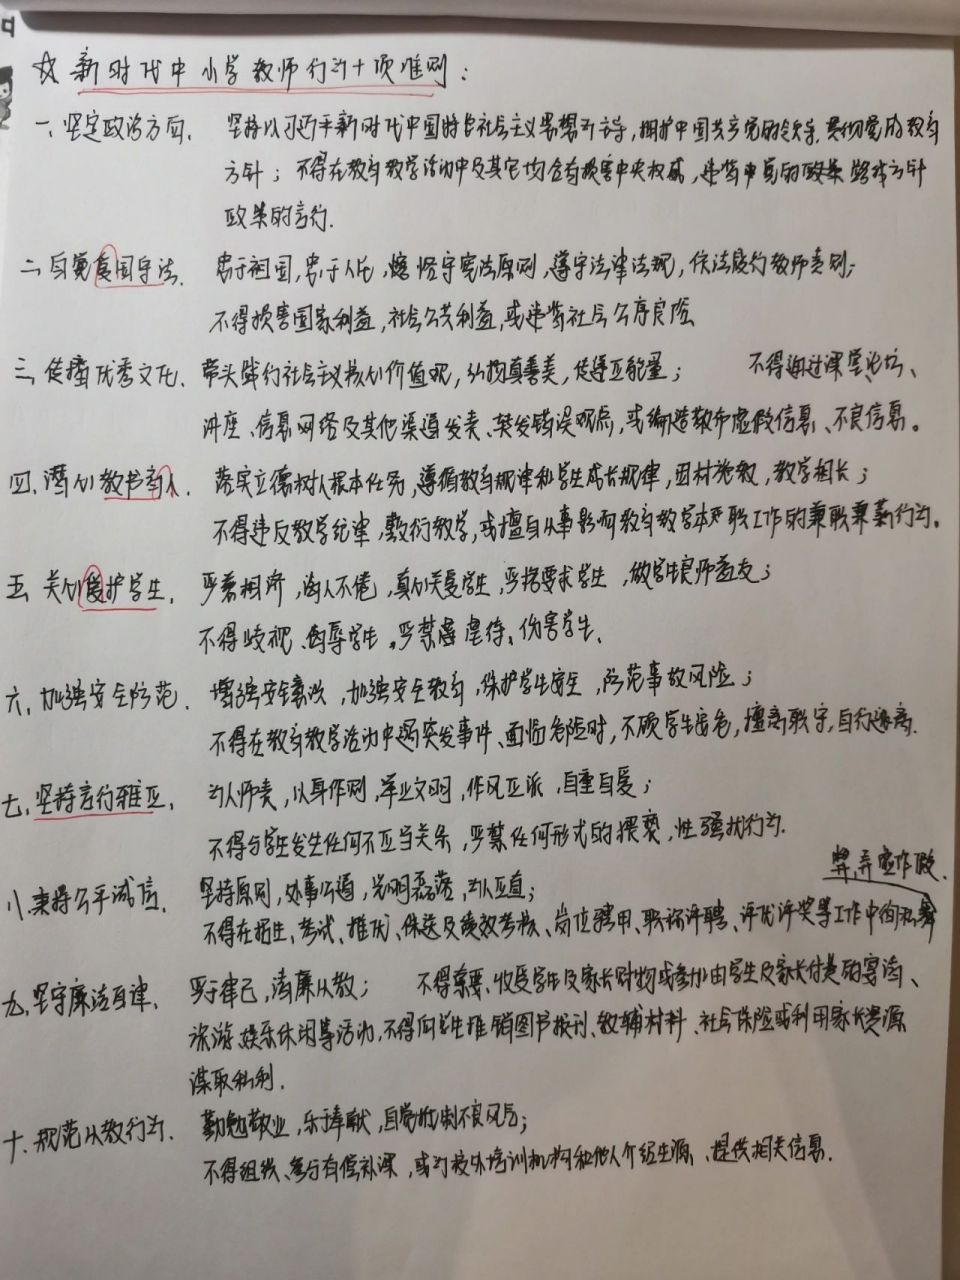 ☆ 新时代中小学教师行为十项准则:
一、坚定政治方向. 坚持以习近平新时代中国特色社会主义思想为主导,拥护中国共产党的领导,贯彻党的教育
方针;不得在教育教学活动中及其它场合有损害中央权威,违背中党的政策路线方针
政策的言行.
二、自觉爱国守法. 忠于祖国,忠于人民,恪守宪法原则,遵守法律法规,依法履行教师责则;
不得损害国家利益,社会公共利益,或违背社会公序良险
三、传播优秀文化. 带头践行社会主义核心价值观,弘扬真善美,传递正能量; 不得通过课堂论坛、
讲座、信息网络及其他渠道发表、转发错误观点,或编造散布虚假信息、不良信息。
四、潜心教书育人. 落实立德树人根本任务,遵循教育规律和学生成长规律,因材施教,教学相长;
不得违反教学纪律,敷衍教学,或擅自从事影响教育教学本职工作的兼职兼薪行为。
五、关心爱护学生. 严慈相济,诲人不倦,真心关爱学生,严格要求学生,做学生良师益友;
不得歧视、侮辱学生。严禁虐待、伤害学生.
六、加强安全防范. 增强安全意识,加强安全教育,保护学生安全,防范事故风险;
不得在教育教学活动中遇突发事件、面临危险时,不顾学生安危,擅离职守,自行逃离.
七、坚持言行雅正. 为人师表,以身作则,举止文明,作风正派,自重自爱;
不得与学生发生任何不正当关系,严禁任何形式的猥亵,性骚扰行为.
弊,弄虚作假.
八、秉持公平诚信. 坚持原则,处事公道,光明磊落,为人正直;
不得在招生、考试、推优、保送及绩效考核、岗位聘用、职称评聘、评优评奖等工作中徇私舞
九、坚守廉洁自律. 严于律己,清廉从教; 不得索要、收受学生及家长财物或参加由学生及家长付费的宴请、
旅游、娱乐休闲等活动,不得向学生推销图书报刊、教辅材料、社会保险或利用家长资源
谋取私利.
十、规范从教行为. 勤勉敬业,乐于奉献,自觉抵制不良风气;
不得组织、参与有偿补课,或为校外培训机构和他人介绍生源、提供相关信息.